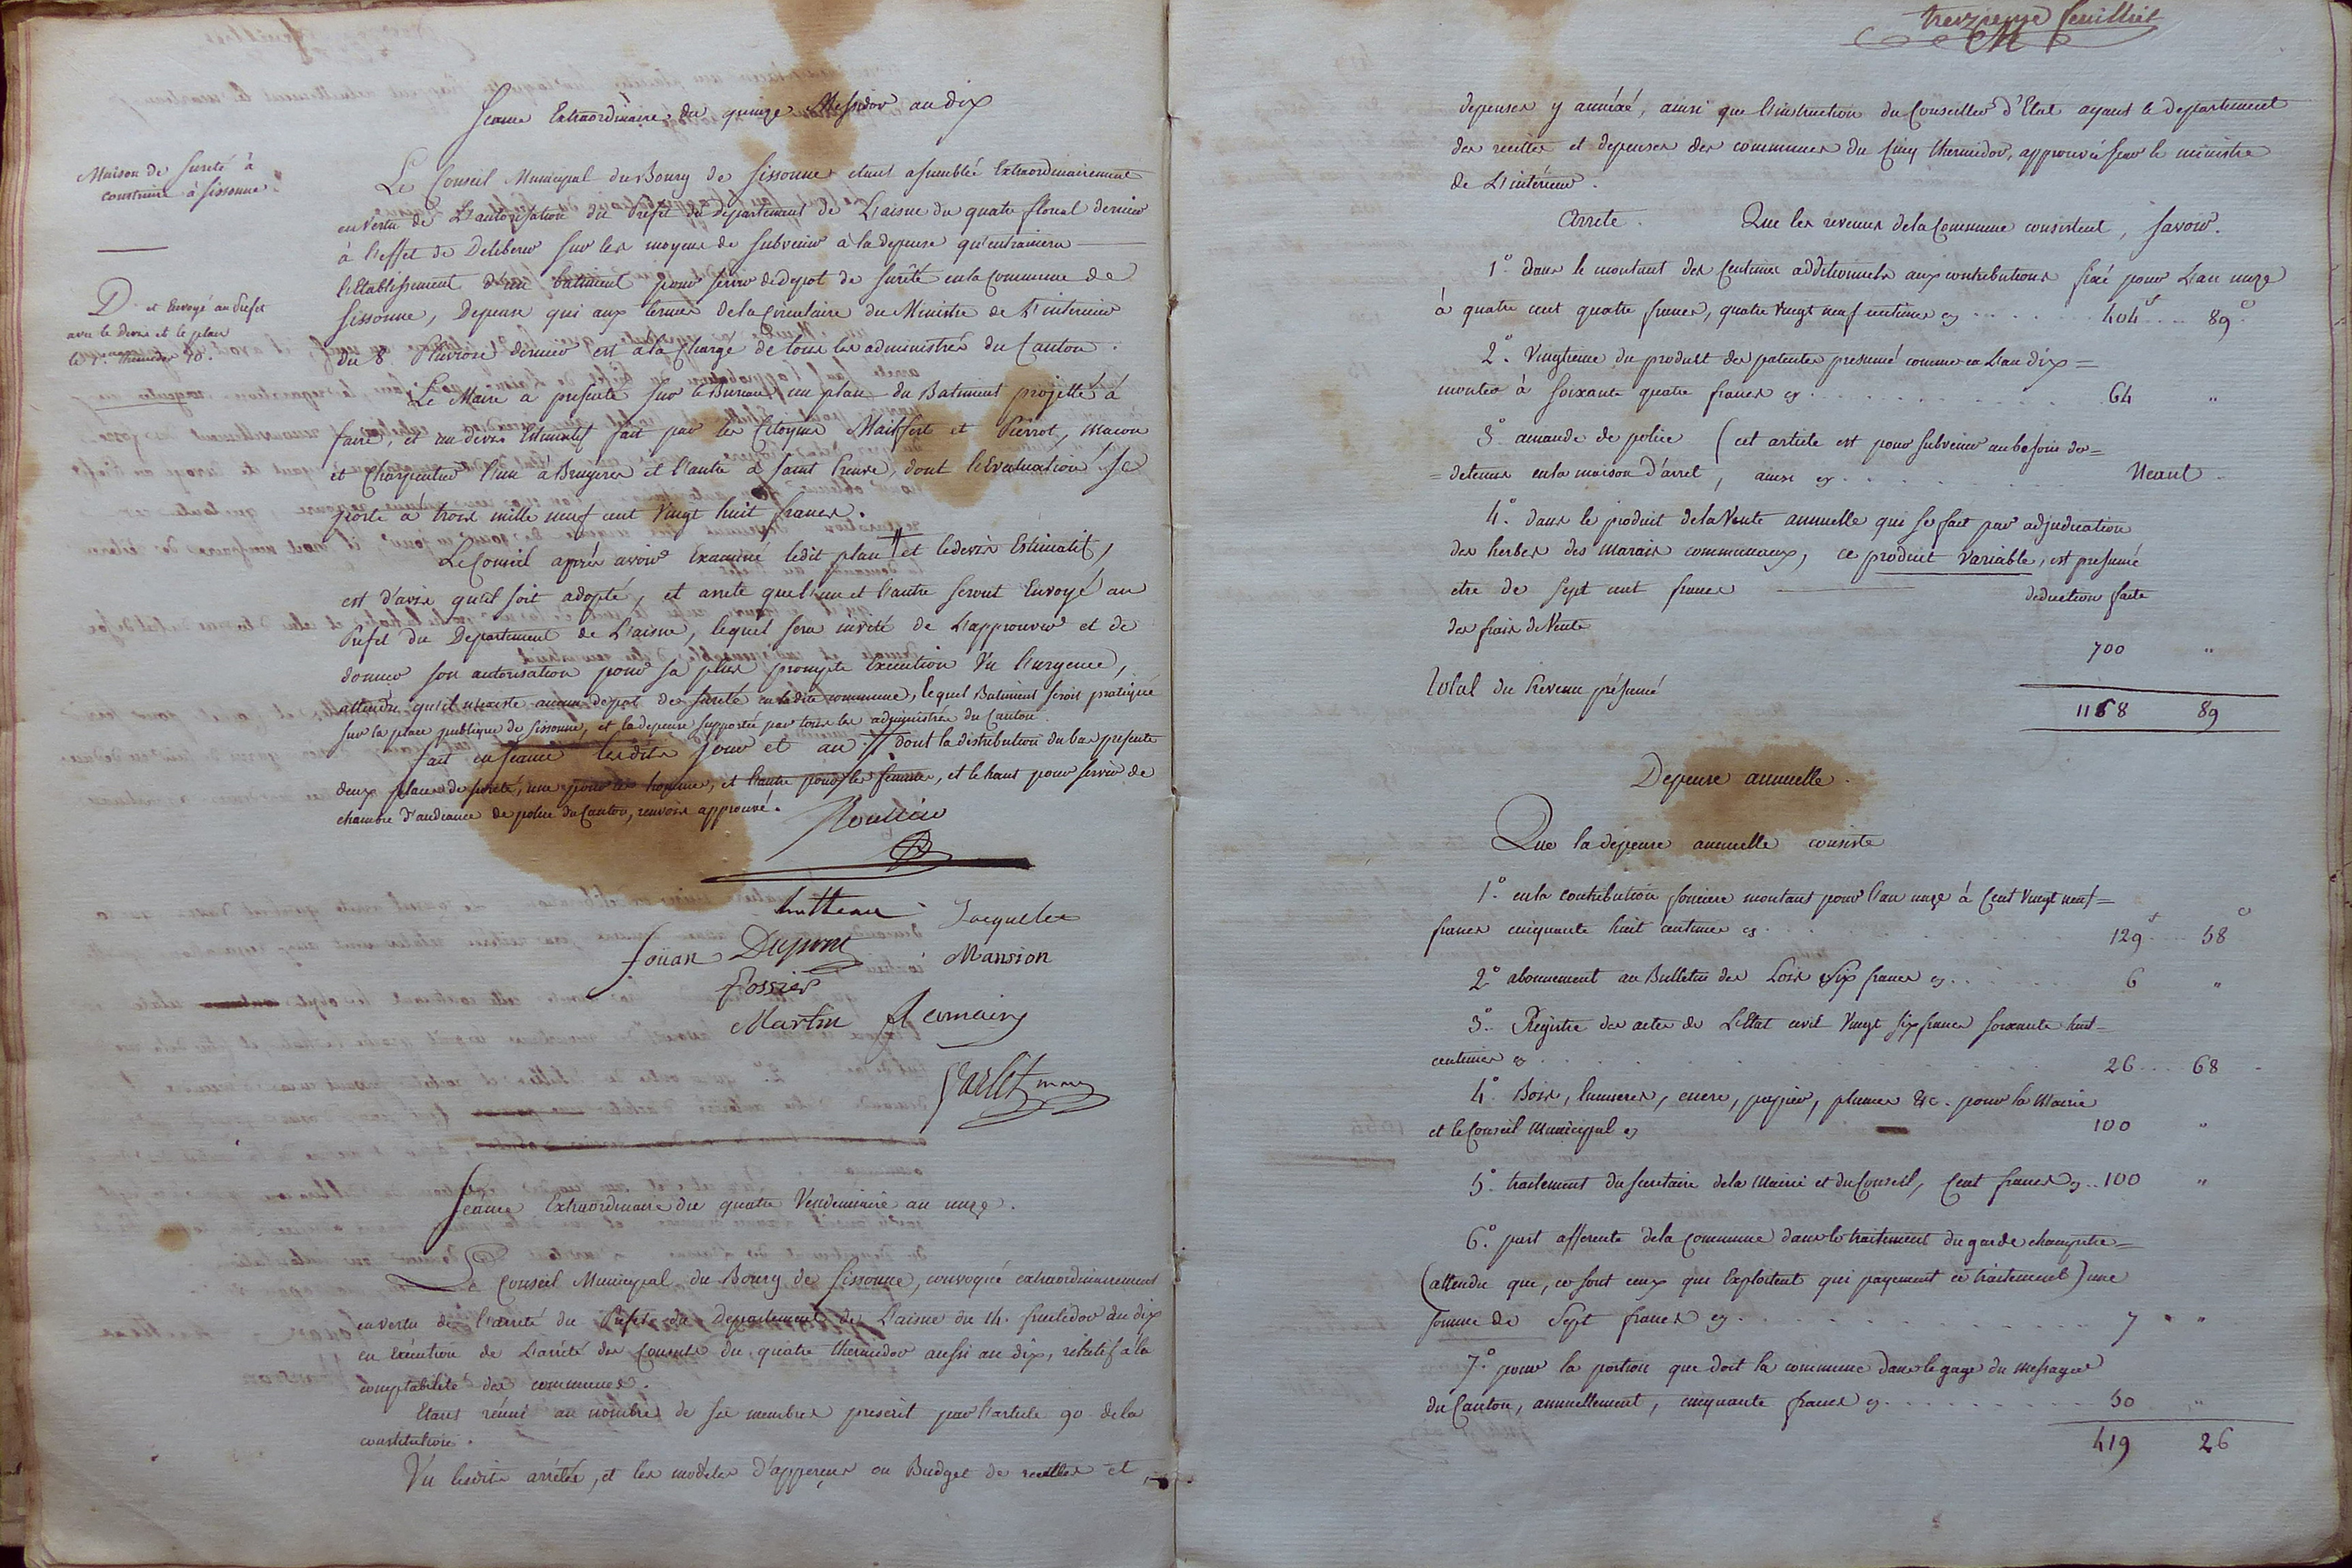 Seance Extraordinaire du quinze Messidor an dix
Maison de Sureté à
construire à Sissonne
D. et Envoyé au Prefet
avec le devis et le plan
le 1er. thermidor 10.
Le Conseil Municipal du Bourg de Sissonne etant assemblé Extraordinairement
en Vertu de L'autorisation du Prefet du departement de L'aisne du quatre floreal dernier
à l'effet de Deliberer sur les moyens de subvenir à la depense qu'entrainera
l'Etablissement d'un batiment pour servir de depot de sureté en la Commune de
Sissonne, Depense qui aux termes de la Circulaire du Ministre de L'interieur
du 8 Pluviose dernier est à la Charge de tous les administrés du Canton.
Le Maire a presenté sur le Bureau un plan du Batiment projetté à
faire, et un devis Estimatif fait par les Citoyens et Pierrot, macon
et Charpentier l'un à Bruyeres et l'autre à Saint Preuve, dont l'Evaluation se
porte à trois mille neuf cent Vingt huit francs.
Le Conseil après avoir Examiné ledit plan # et le devis Estimatif,
est d'avis qu'il soit adopté, et arrete que l'un et l'autre seront Envoyé au
Prefet du Departement de L'aisne, lequel sera invité de L'approuver et de
donner son autorisation pour sa plus prompte Execution Vu l'urgence,
attendu qu'il n'existe aucun depot de sureté en ladite commune, lequel Batiment serois pratiqué
sur la place publique de Sissonne, et la depense supportée par tous les administrés du Canton.
fait en seance lesdits jour et an. # dont la distribution du bas presente
deux places de sureté, une pour les hommes, et l'autre pour les femmes, et le haut pour servir de
chambre d'audiance de police du Canton, renvois approuvé.
Jacquelet
Joüan Dupont Mansion
Fossier
Martin
Carlet maire
Seance Extraordinaire du quatre Vendemiaire an onze.
Le Conseil Municipal du Bourg de Sissonne, convoqué extraordinairement
en vertu de l'arreté du Prefet du Departement de L'aisne du 14. fructidor an dix
en Execution de L'arrêté des Consuls du quatre thermidor aussi an dix, relatif à la
comptabilité des communes.
Etant réuni au nombre de ses membres prescrit par l'article 90 de la
constitution.
Vu lesdits arrêtés, et les modèles d'apperçus ou Budget de recettes et
treizieme feuillet
depenses y annéxé, ainsi que l'instruction du Conseiller d'Etat ayant le departement
des recettes et depenses des communes du Cinq thermidor, approuvée par le ministre
de L'intérieur.
Arrete. Que les revenus de la Commune consistent, Savoir.
1.° dans le montant des Centimes additionnels aux contributions fixé pour L'an onze
à quatre cent quatre francs, quatre Vingt neuf centimes cy ........ 404f ... 89c
2.° Vingtieme du produit des patentes presumé comme en L'an dix =
monter à soixante quatre francs cy ........ 64 "
3.° amande de police (cet article est pour subvenir au besoin des =
= detenus en la maison d'arret, ainsi cy ........ Neant
4.° dans le produit de la Vente annuelle qui se fait par adjudication
des herbes des Marais communaux, ce produit Variable, est presumé
etre de Sept cent francs deduction faite
des frais de Vente
700 "
Total du Revenu présumé
1168 89
Depense annuelle.
Que la depense annuelle consiste
1.° en la contribution fonciere montant pour l'an onze à Cent Vingt neuf =
francs cinquante huit centimes cy ........ 129f ... 58c
2.° abonnement au Bulletin des Lois Six francs cy ........ 6 "
3.° Registre des actes de L'Etat civil Vingt six francs soixante huit =
centimes cy ........ 26 .... 68
4.° Bois, lumieres, encre, papier, plumes &c. pour la Mairie
et le Conseil Municipal cy 100 "
5.° traitement du secretaire de la Mairie et du Conseil, Cent francs cy .. 100 "
6.° part afferente de la Commune dans le traitement du garde champetre =
(attendu que, ce sont ceux qui Exploitent qui payement ce traitement) une
somme de Sept francs cy ........ 7 " "
7.° pour la portion que doit la commune dans le gage du Messager
du Canton, annuellement, cinquante francs cy ........ 50 "
419 26